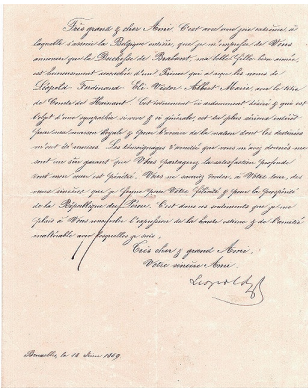 Très grand & cher Ami. C'est avec une joie extrême, à
laquelle s'associe la Belgique entière, que je m'empresse de Vous
annoncer que la Duchesse de Brabant, ma belle fille bien aimée,
est heureusement accouchée d'un Prince qui a reçu les noms de
Léopold Ferdinand Elie Victor Albert Marie, avec le titre
de Comte de Hainaut. Cet évènement si ardemment désiré & qui est
l'objet d'une sympathie si vive & si générale, est des plus
pour ma maison Royale & pour l'avenir de la nation dont les destinées
m'ont été remises. Les témoignages d'amitié que vous m'avez donnés me
sont un sûr garant que Vous partagerez la satisfaction profonde
dont mon cœur est pénétré. Vous ne sauriez douter, à Votre tour, des
vœux sincères que je forme pour Votre félicité & pour la prospérité
de la République du Pérou. C'est dans ces sentiments que je me
plais à Vous renouveler l'expression de la haute estime & de l'amitié
inaltérable avec lesquelles je suis,
Très cher & grand Ami,
Votre sincère Ami
Léopold
Bruxelles, le 18 Juin 1859